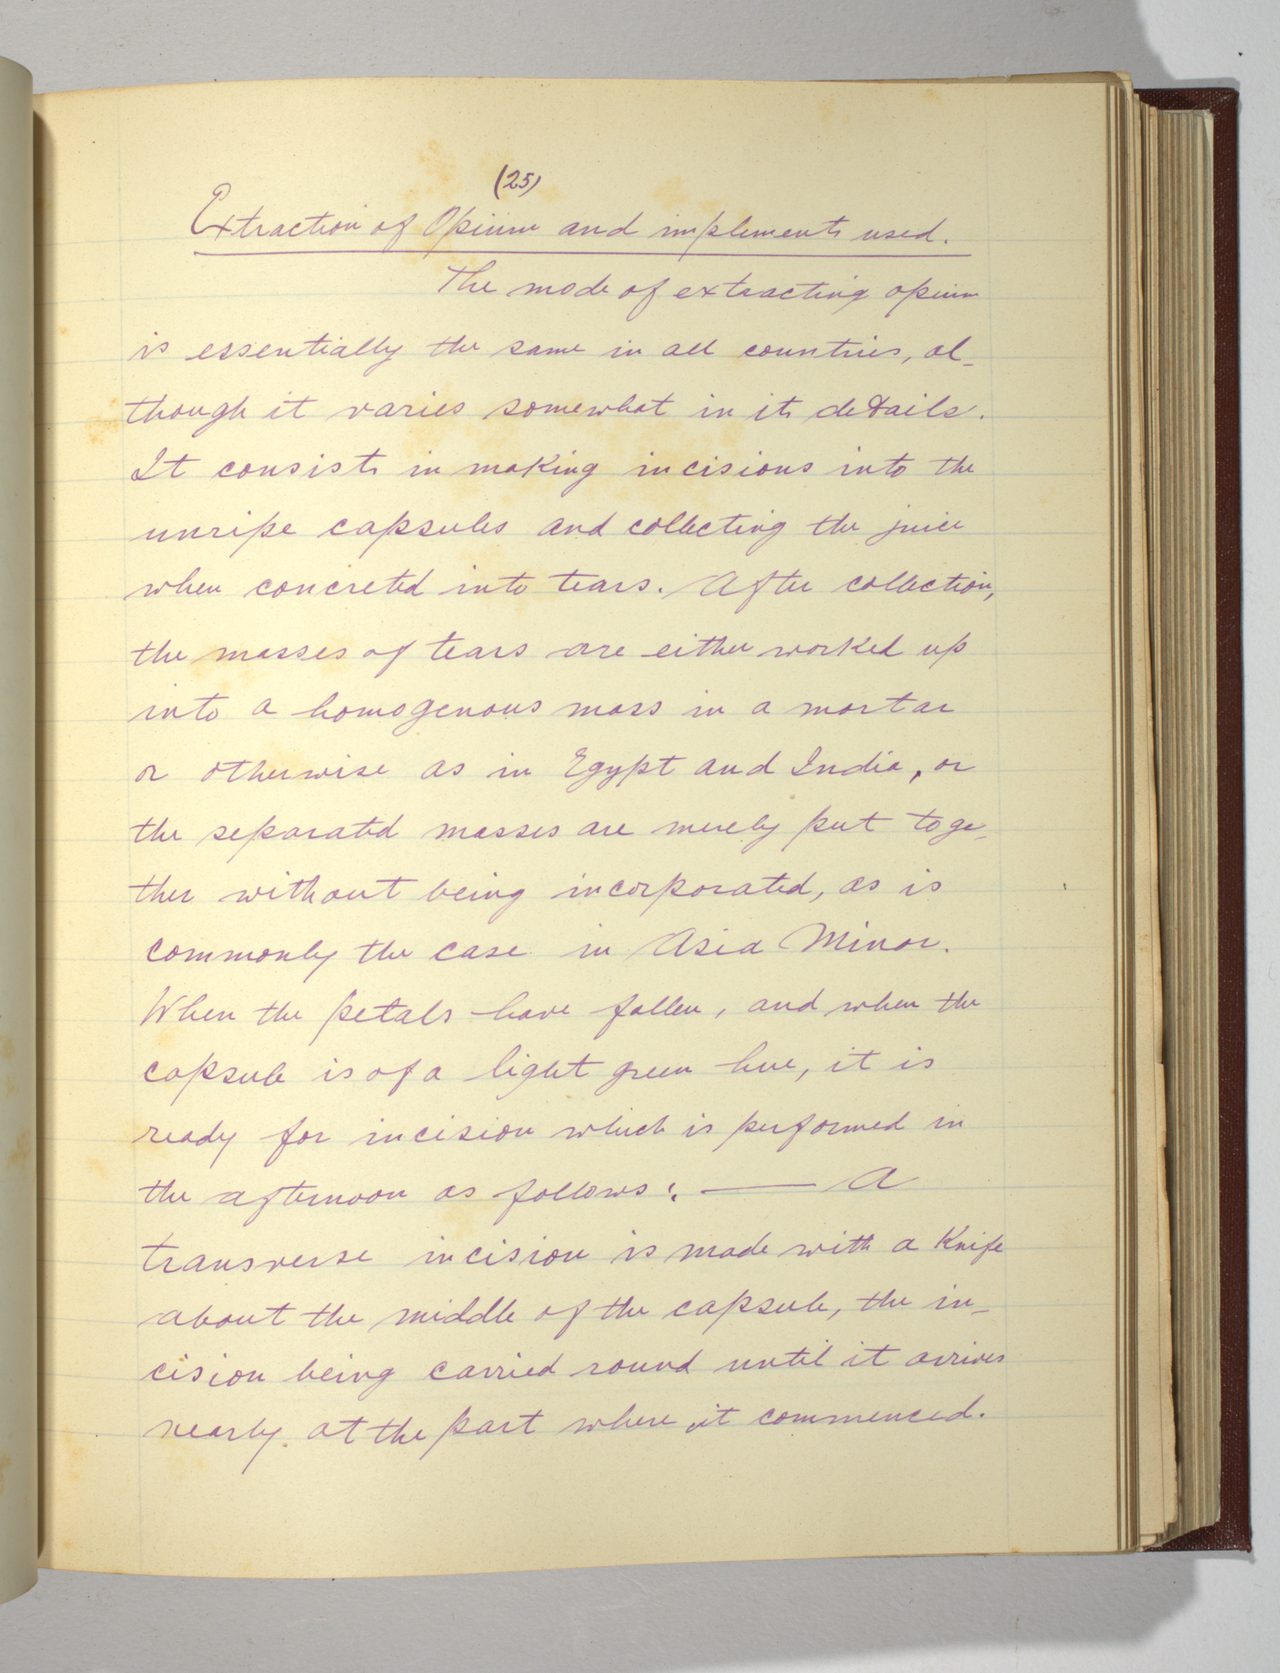 (25)
Extraction of Opium and implements used.
The mode of extracting opium
is essentially the same in all countries, al-
though it varies somewhat in its details.
It consists in making incisions into the
unripe capsules and collecting the juice
when concreted into tears. After collection,
the masses of tears are either worked up
into a homogenous mass in a mortar
or otherwise as in Egypt and India, or
the separated masses are merely put toge-
ther without being incorporated, as is
commonly the case in Asia Minor.
When the petals have fallen, and when the
capsule is of a light green hue, it is
ready for incision which is performed in
the afternoon as follows: — A
transverse incision is made with a Knife
about the middle of the capsule, the in-
cision being carried round until it arrives
nearly at the part where it commenced.